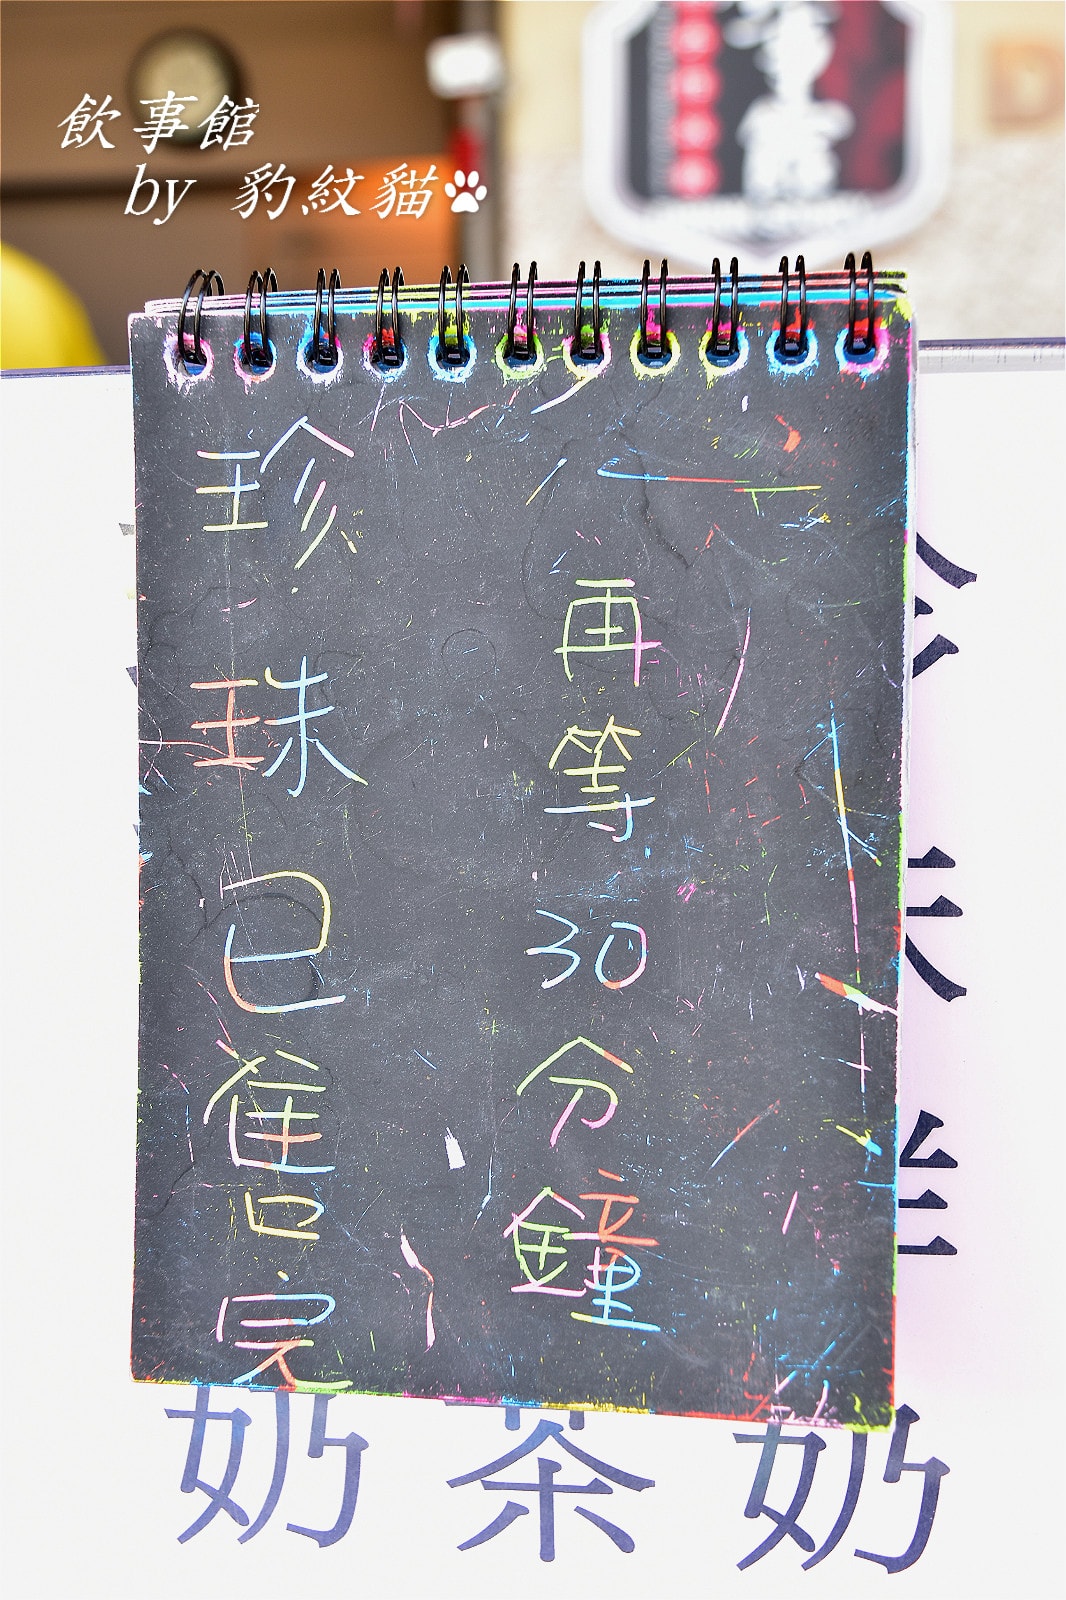 飲事館
by 豹紋貓
珍珠已售完
再等30分鐘
奶茶奶